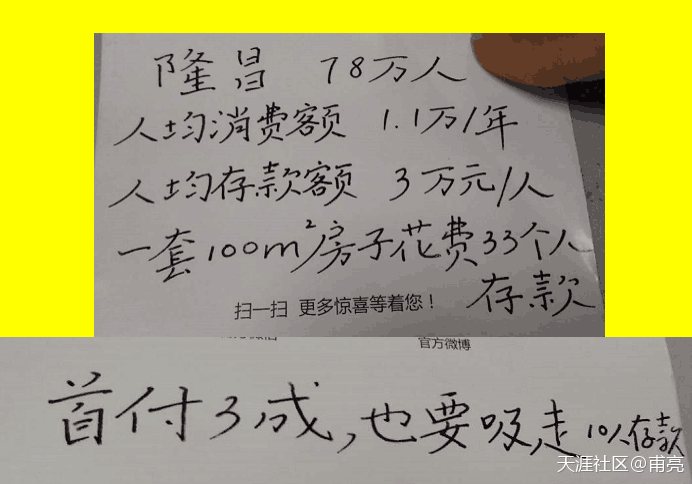 隆昌 78万人
人均消费额 1.1万/年
人均存款额 3万元/人
一套100m²房子花费33个人
存款
扫一扫 更多惊喜等着您！
官方微博
首付3成,也要吸走10人存款
天涯社区@甫亮